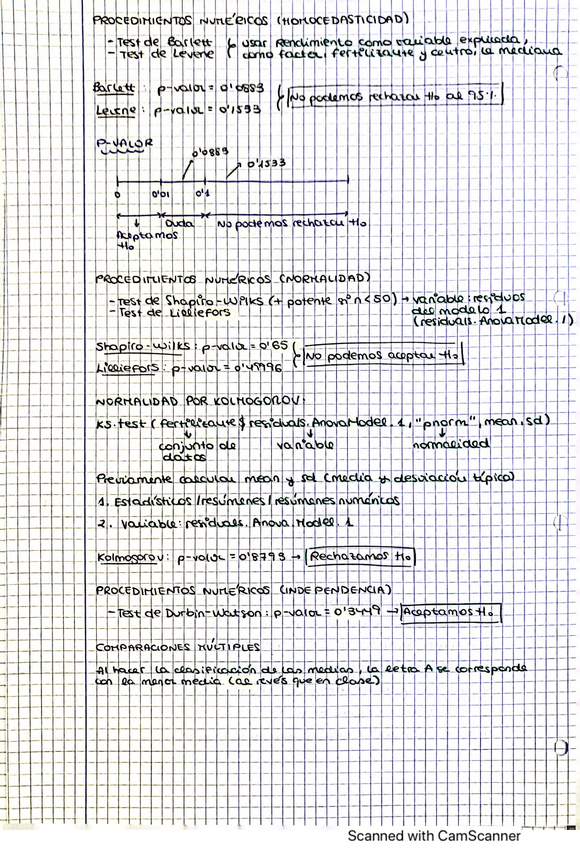 PROCEDIMIENTOS NUMÉRICOS (HOMOCEDASTICIDAD)
- Test de Barlett
- Test de Levene
usar Rendimiento como variable explicada,
como factor, fertilizante y centro, la mediana
Barlett: p-valor = 0'0883
Levene: p-valor = 0'1533
No podemos rechazar Ho al 95%.
P-VALOR
0'0883
0'1533
0 0'01 0'1
Aceptamos Ho
Duda
No podemos rechazar Ho
PROCEDIMIENTOS NUMÉRICOS (NORMALIDAD)
- Test de Shapiro-Wilks (+ potente si n<50) → variable: residuos
- Test de Lilliefors
del modelo 1
(residuals.AnovaModel.1)
Shapiro-Wilks: p-valor = 0'65
Lilliefors: p-valor = 0'49996
No podemos aceptar Ho
NORMALIDAD POR KOLMOGOROV:
KS.test (fertilizante$residuals.AnovaModel.1, "pnorm", mean, sd)
conjunto de datos
variable
normalidad
Previamente calcular mean y sd (media y desviación típica)
1. Estadísticos/resúmenes/resúmenes numéricos
2. Variable: residuals.Anova.Model.1
Kolmogorov: p-valor = 0'8793 → Rechazamos Ho
PROCEDIMIENTOS NUMÉRICOS (INDEPENDENCIA)
- Test de Durbin-Watson: p-valor = 0'3449 → Aceptamos Ho
COMPARACIONES MÚLTIPLES
Al hacer la clasificación de las medias, la letra A se corresponde
con la menor media (al revés que en clase)
Scanned with CamScanner